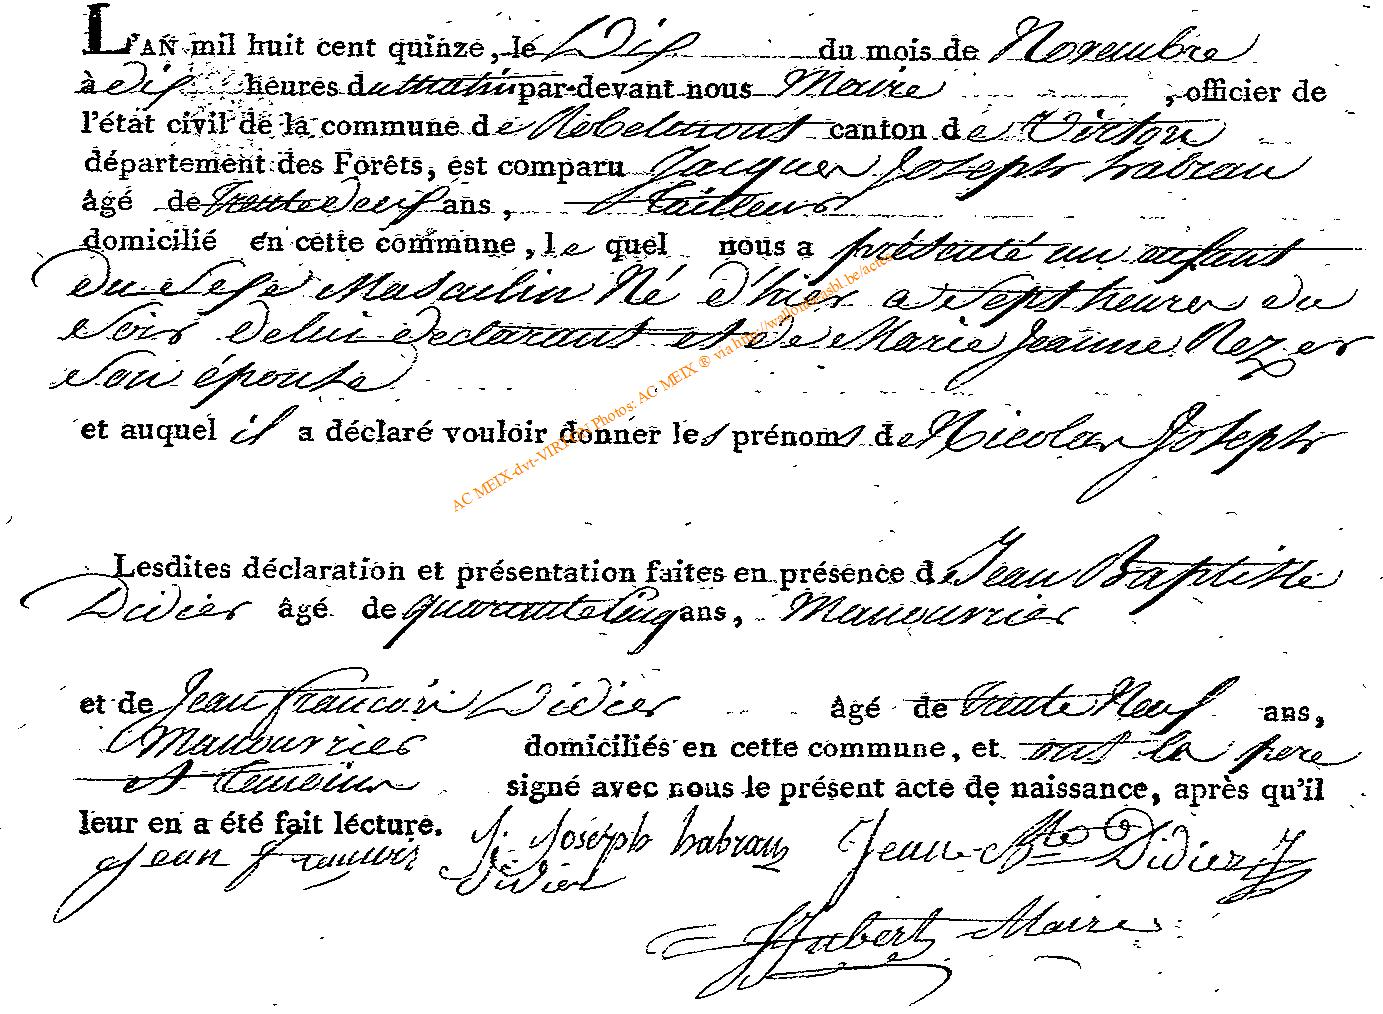 L'AN mil huit cent quinze, le Dix du mois de Novembre
à dix heures du matin par-devant nous Maire , officier de
l'état civil de la commune de Robelmont canton de Virton
département des Forêts, est comparu Jacques Joseph habran
âgé de trente Deux ans, tailleur
domicilié en cette commune, le quel nous a présenté un enfant
Du Sexe Masculin Né d'hier a Sept heures du
Soir De lui declarant et de Marie Jeanne Rezer
Son épouse
et auquel il a déclaré vouloir donner les prénoms de Nicolas Joseph
Lesdites déclaration et présentation faites en présence de Jean Baptiste
Didier âgé de quarante Cinq ans, Manouvrier
et de Jean françois Didier âgé de trente Neuf ans,
Manouvrier domiciliés en cette commune, et ont le pere
et temoins signé avec nous le présent acte de naissance, après qu'il
leur en a été fait lécture.
J. Joseph habran Jean Bte Didier
Jean francois Didier
Hubert Maire
AC MEIX-dvt-VIRTON Photos: AC MEIX ® via http://wallonica.asbl.be/actes